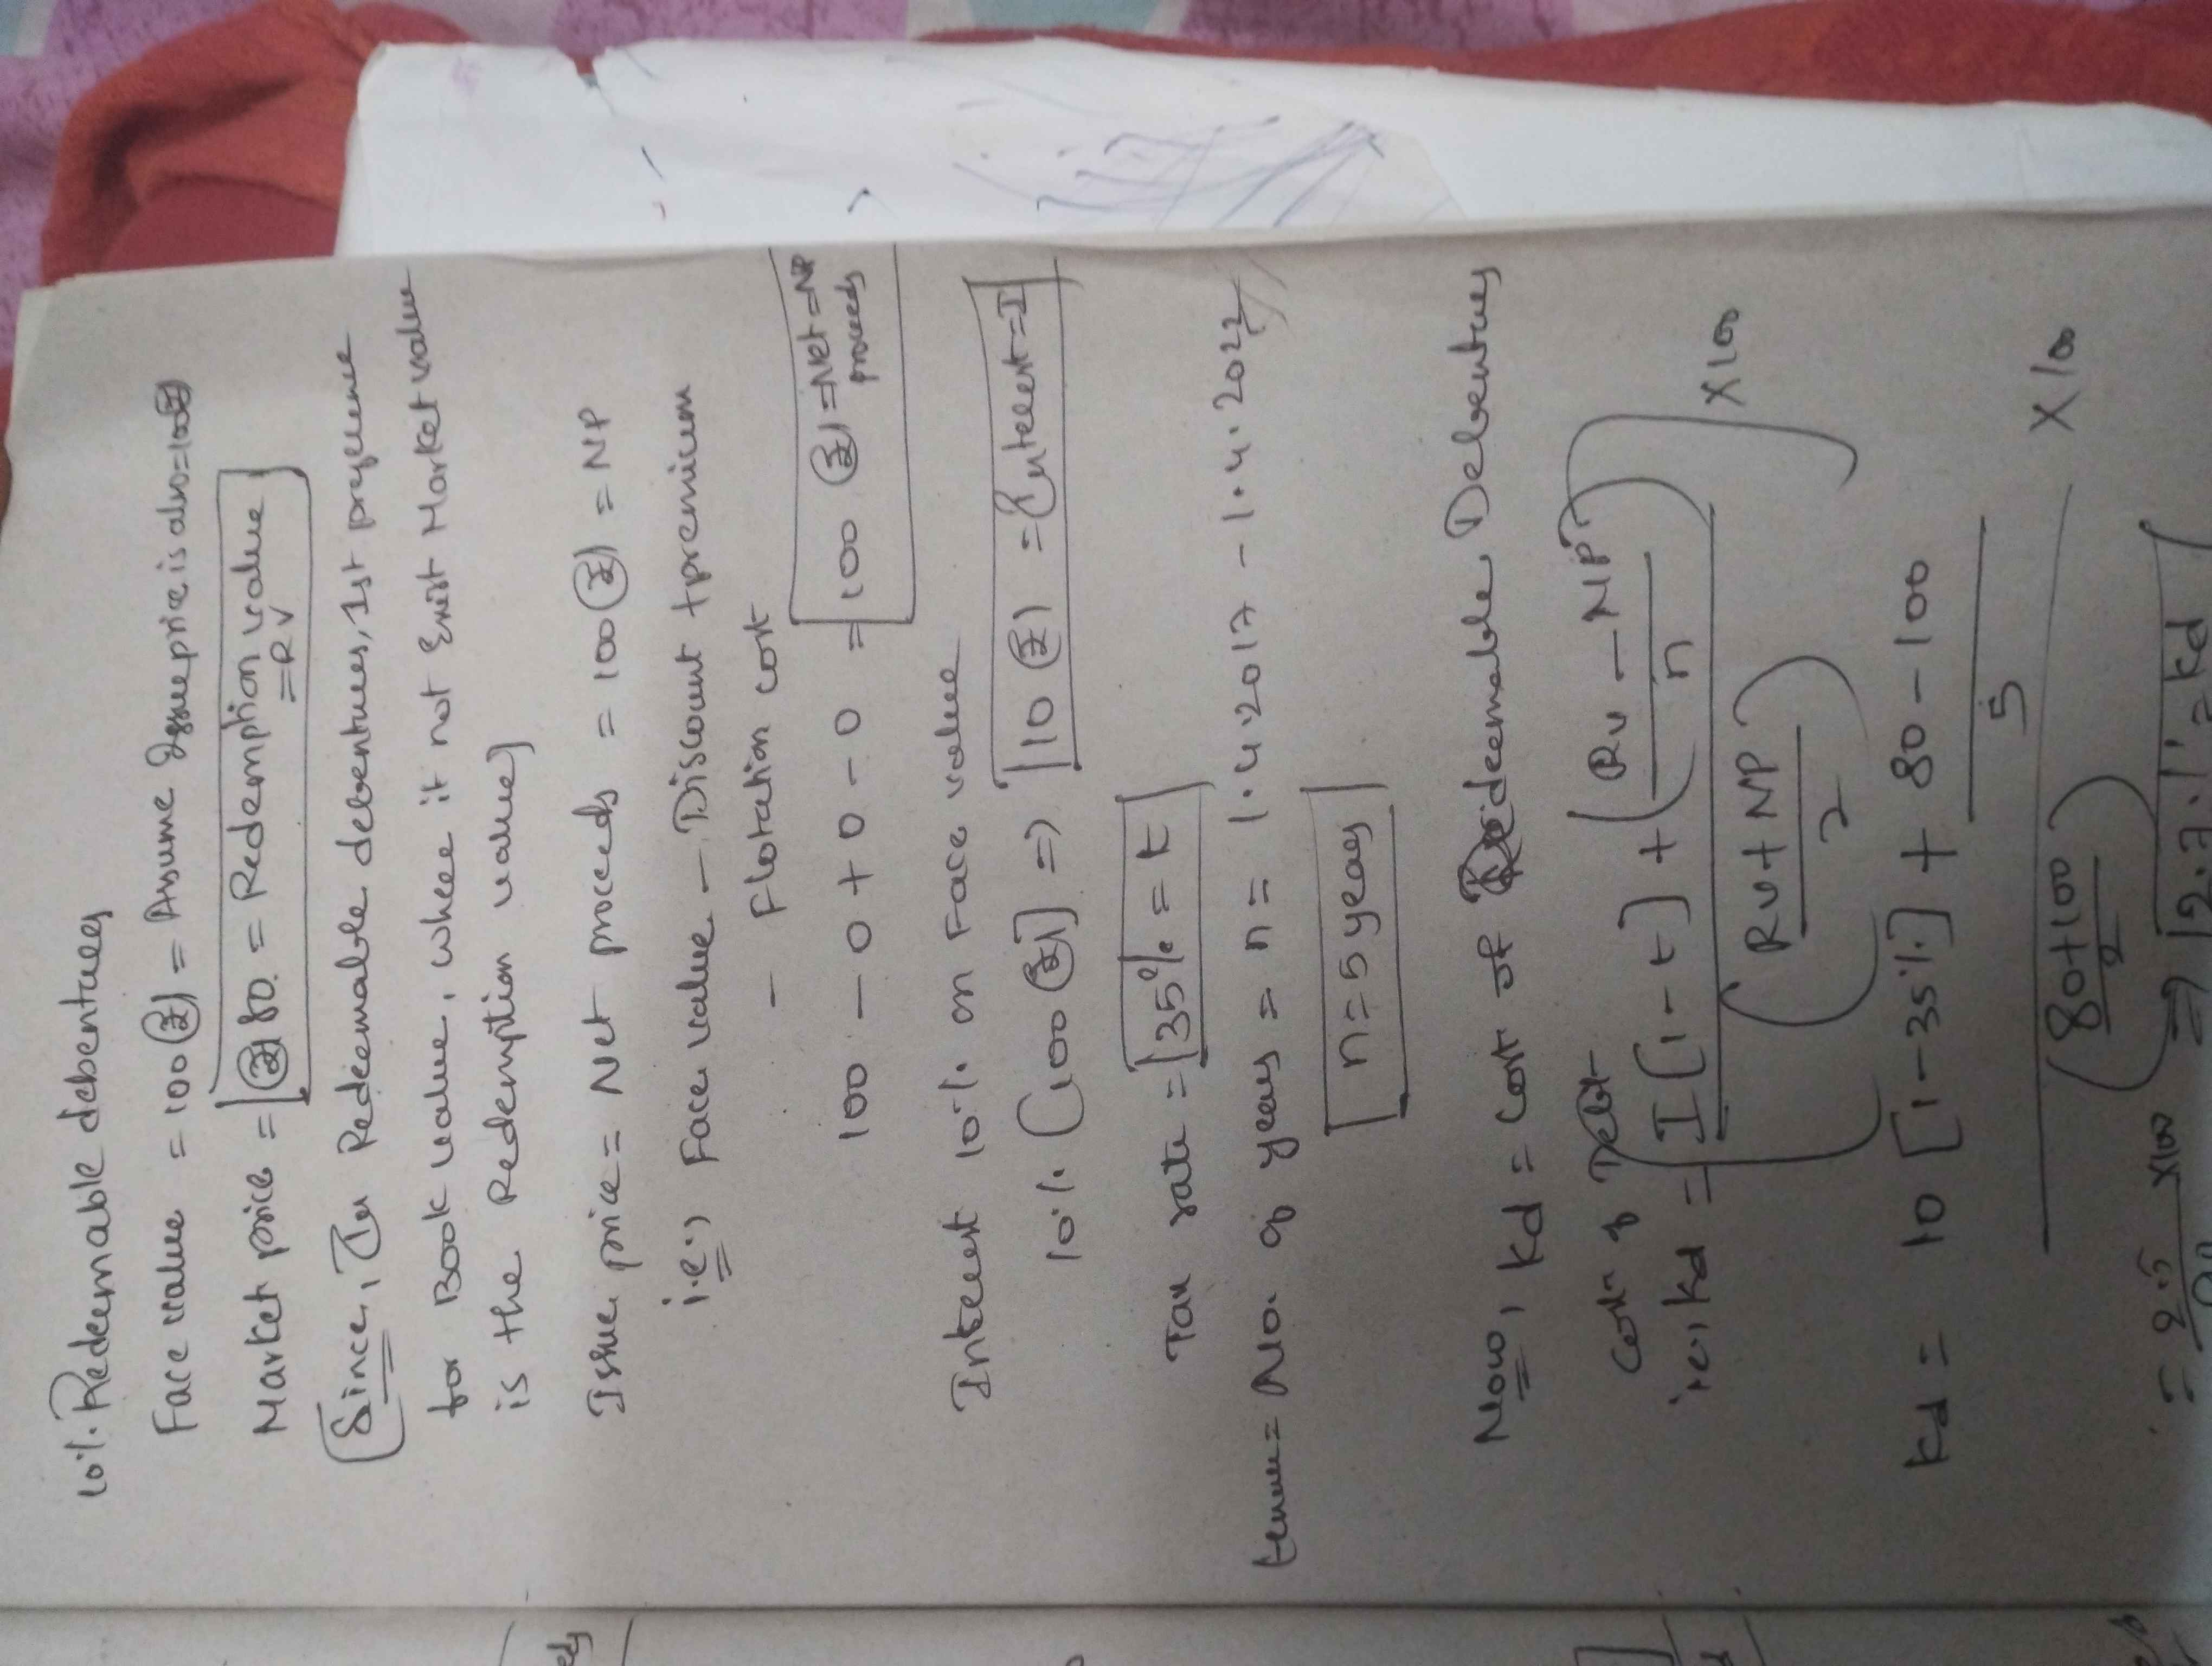 10%. Redeemable debentures
Face value = 100 (₹) = Assume Issue price is also = 100₹
Market price = (₹) 80. = Redemption value = RV
[Since, In Redeemable debentures, 1st preference
for Book value, where it not Exist Market value
is the Redemption value]
Issue price = Net proceeds = 100 (₹) = NP
i.e., Face value - Discount + premium
- Flotation cost
100 - 0 + 0 - 0 = 100 (₹) = Net = NP proceeds
Interest 10%. on Face value
10%. (100 (₹)] => 10 (₹) = Interest = I
Tax rate = 35% = t
tenure = No. of years = n = 1.4.2017 - 1.4.2022
n = 5 years
Now, Kd = Cost of Redeemable Debentures
Cost of Debt
i.e., Kd = I [1 - t] + (RV - NP / n) / (RV + NP / 2) X 100
Kd = 10 [1 - 35%] + 80 - 100 / 5
(80 + 100 / 2) X 100
= 2.5 X100 => 2.7.1. = Kd